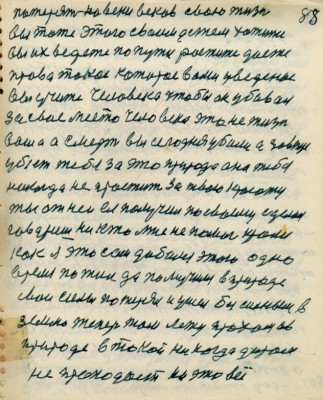 88
потерять на веки веков свою жизнь
Вы тоте этого своими детям хотите
Вы их ведете по пути растите даете
права такое которое вами уведеное
Вы учите человека чтобы он убивал
За свое место человека это не жизнь
ваша а смерть вы сегодня убили а завтра
убьет тебя за это природа она тебя
никогда не простит за твою красоту
ты от неи ее получил по своему сделал
говориш никто мне не помог кроме
как я это сам добился этого одно
время пожил да получил в природе
свои силы потерял и ушел бессильным в
землю теперь там лежу прахом а в
природе в такой никогда даром
не проходит на это всё